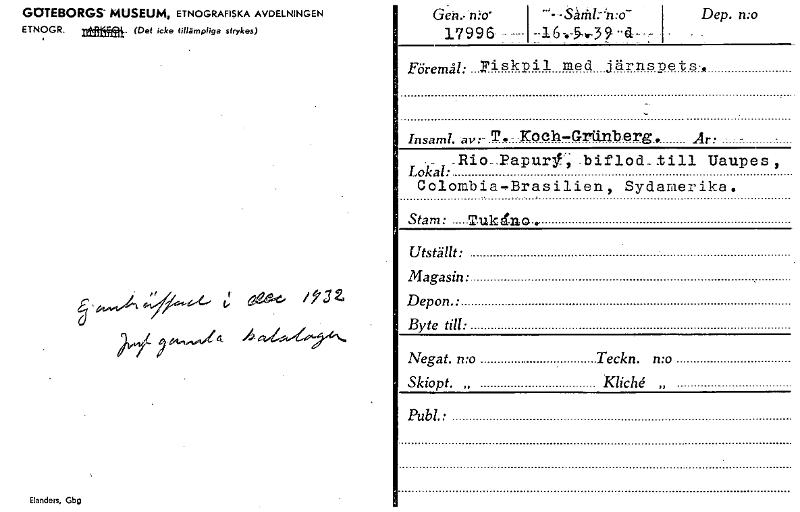 GÖTEBORGS MUSEUM, ETNOGRAFISKA AVDELNINGEN
ETNOGR. ARKEOL. (Det icke tillämpliga strykes)
Ej anträffad i dec 1932
Jmf gamla katalogen
Elanders, Gbg
Gen. n:o Saml. n:o Dep. n:o
17996 16.5.39 d
Föremål: Fiskpil med järnspets.
Insaml. av: T. Koch-Grünberg. År:
Rio Papury, biflod till Uaupes,
Lokal:
Colombia-Brasilien, Sydamerika.
Stam: Tukáno.
Utställt:
Magasin:
Depon.:
Byte till:
Negat. n:o Teckn. n:o
Skiopt. „ Kliché „
Publ.: